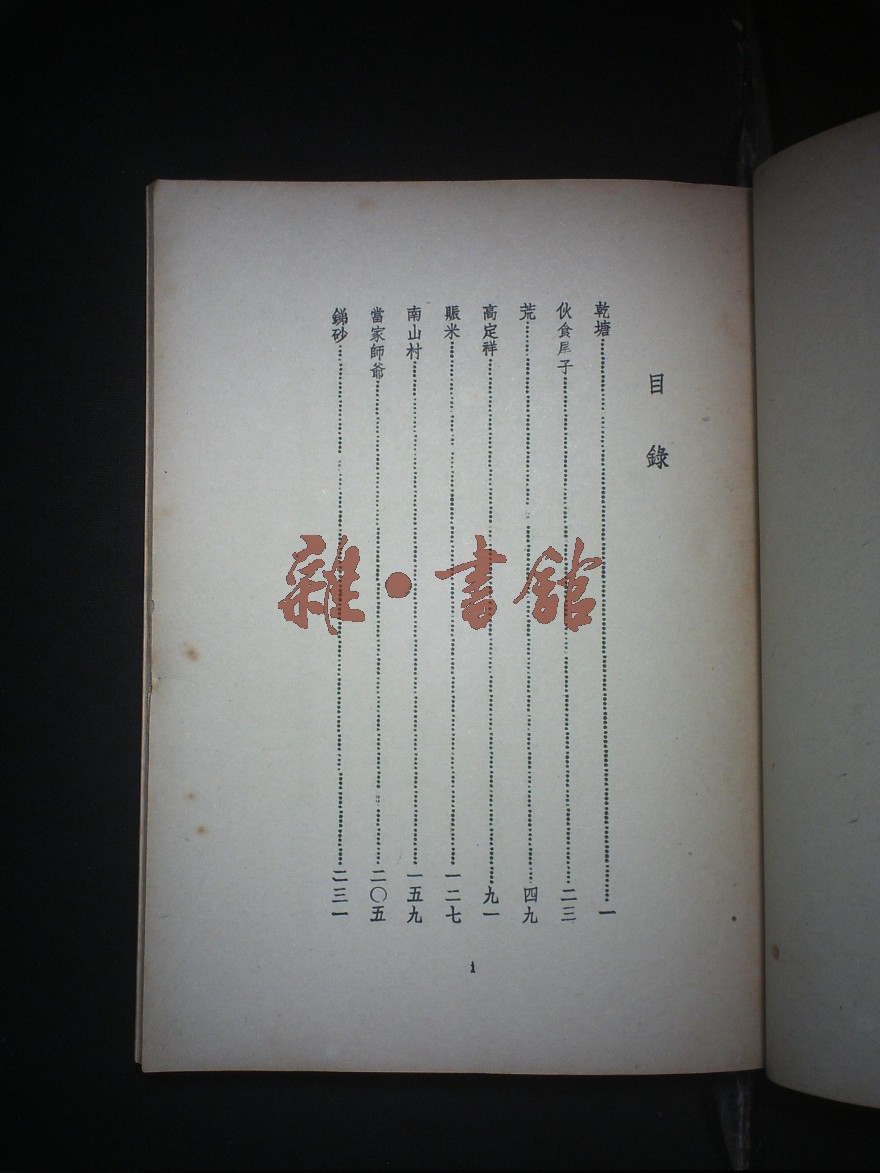 目錄
乾塘……一
伙食尾子……二三
荒……四九
高定祥……九一
賬米……一二七
南山村……一五九
當家師爺……二〇五
銻砂……二三一
1
雜·書館